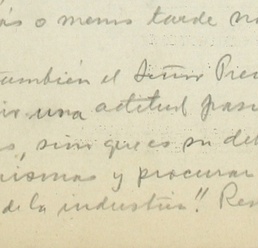 ás o menos tarde no
también el Señor Pre
ir una actitud pasi
s, sino que es su deb
mismas y procurar
de la industria." Res